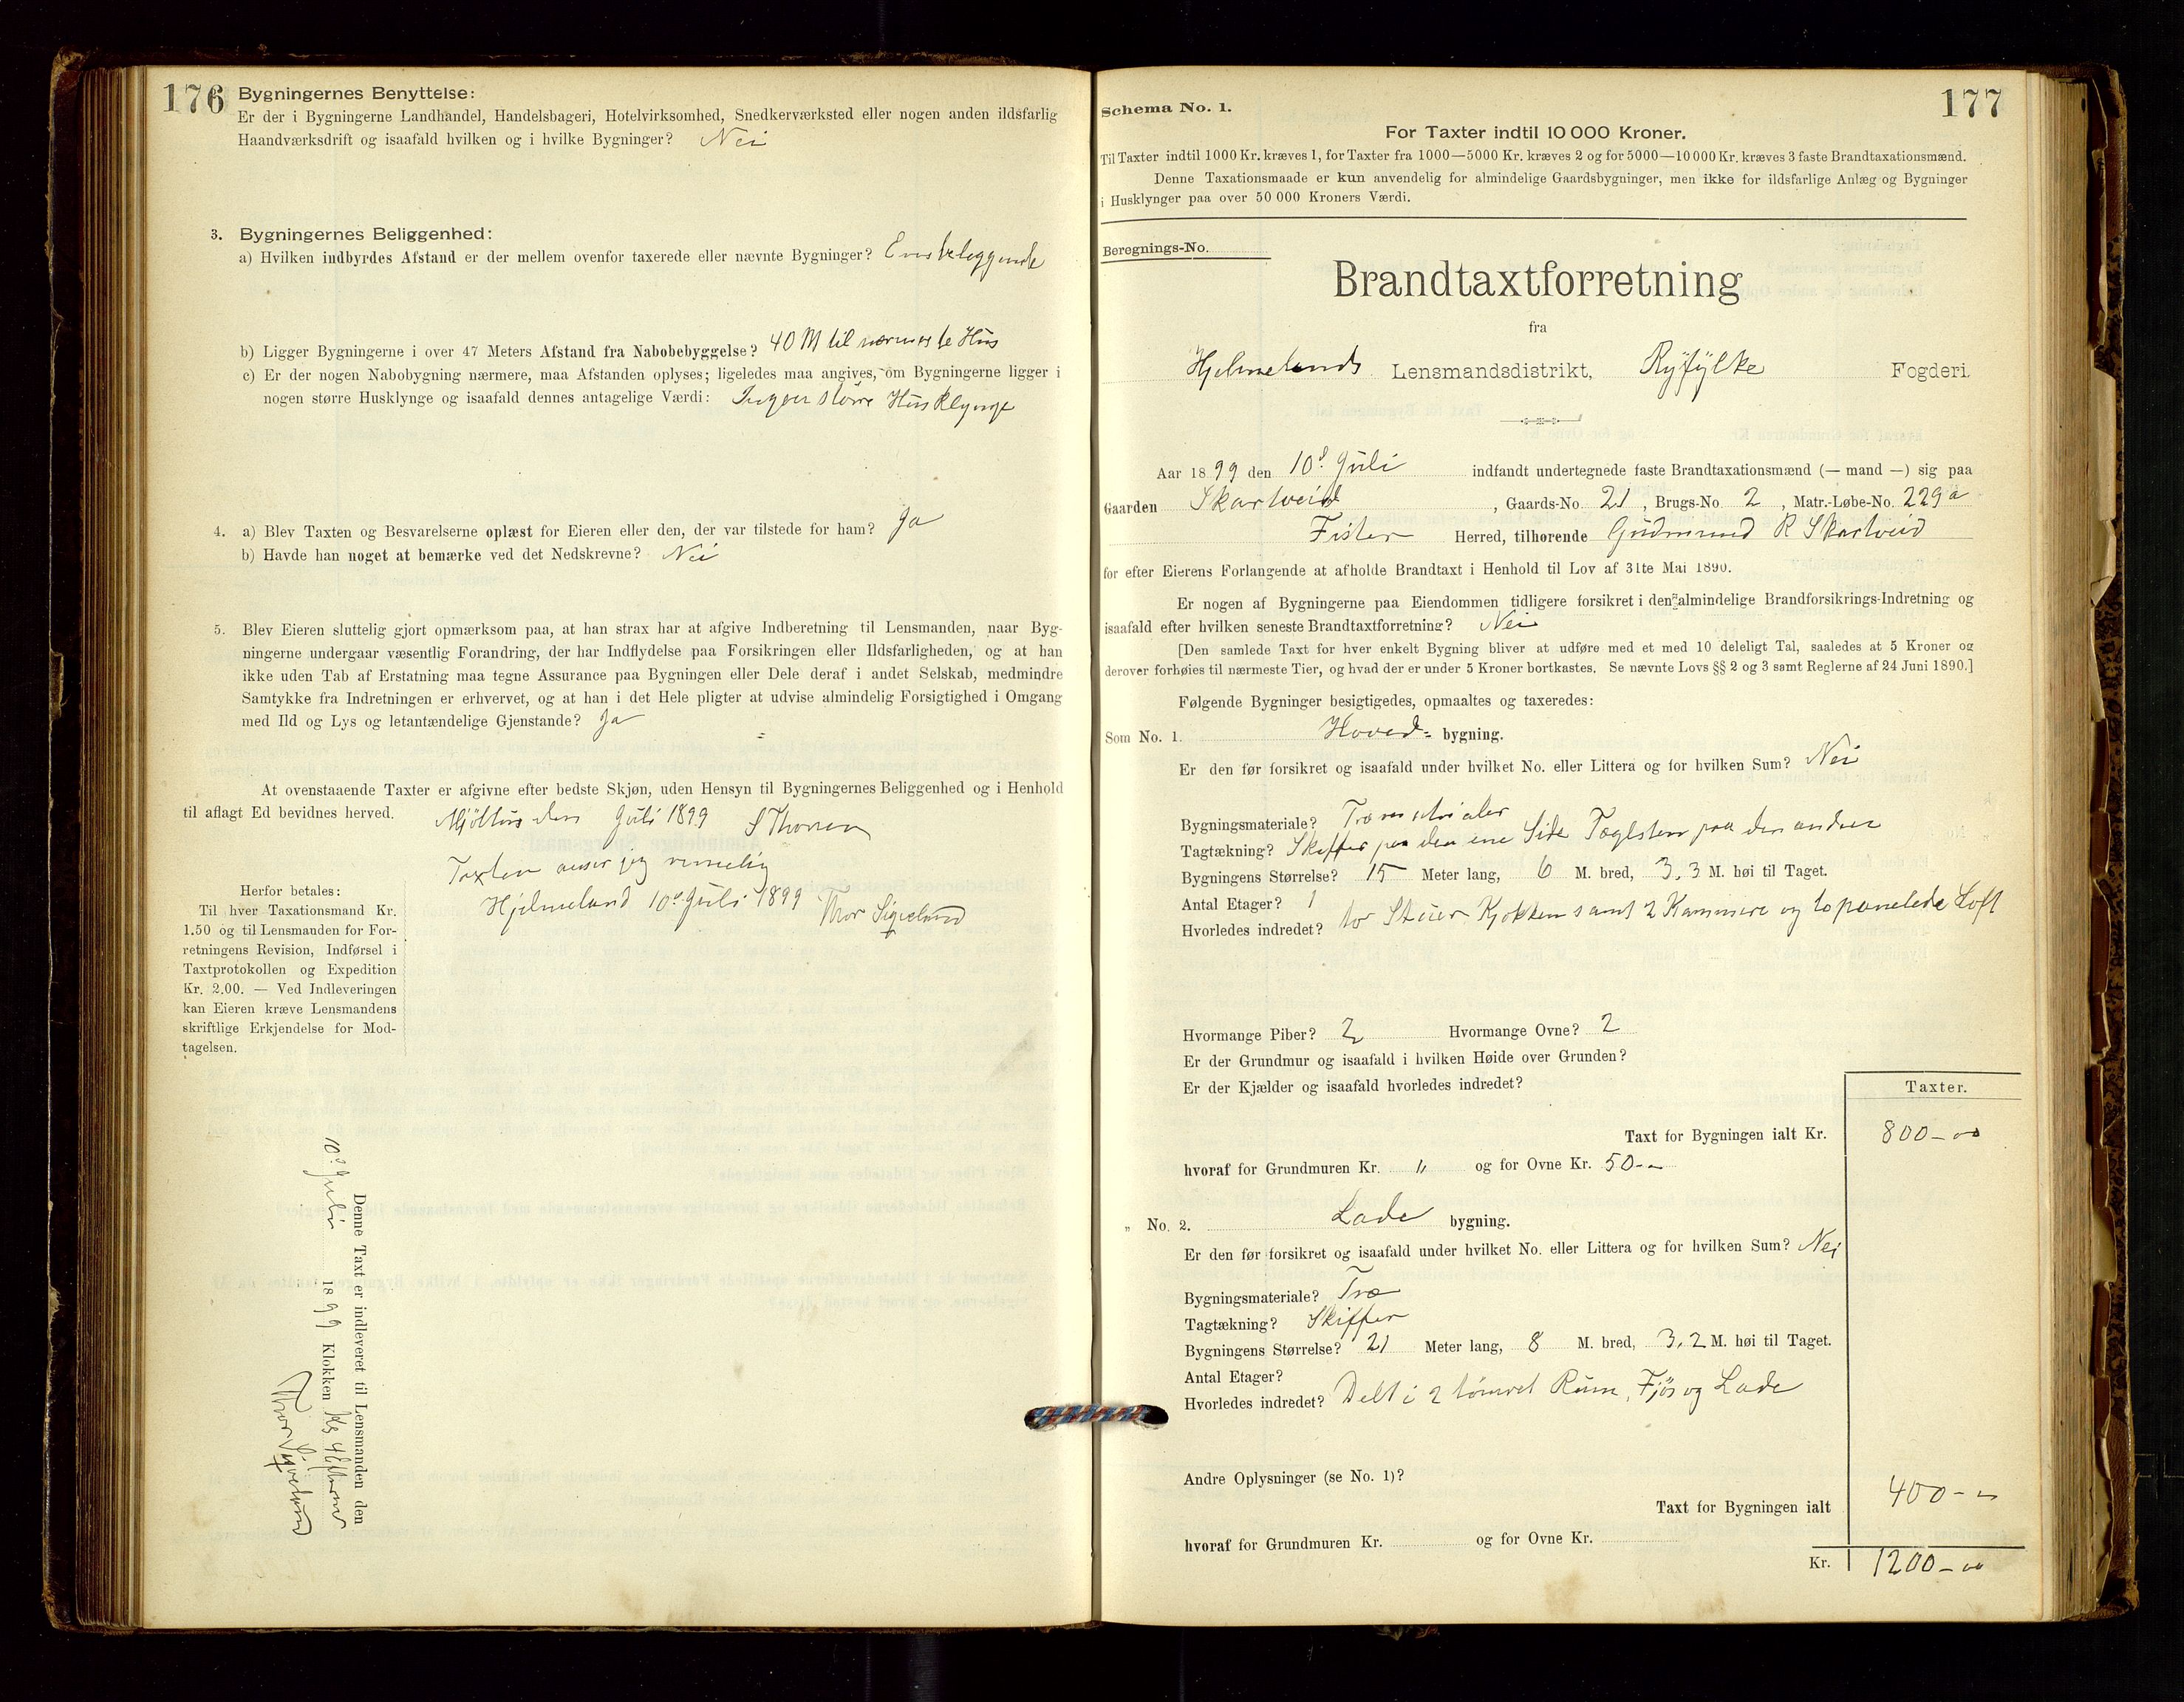 176
Bygningernes Benyttelse:
Er der i Bygningerne Landhandel, Handelsbageri, Hotelvirksomhed, Snedkerværksted eller nogen anden ildsfarlig
Haandværksdrift og isaafald hvilken og i hvilke Bygninger? Nei
3. Bygningernes Beliggenhed:
a) Hvilken indbyrdes Afstand er der mellem ovenfor taxerede eller nævnte Bygninger?
b) Ligger Bygningerne i over 47 Meters Afstand fra Nabobebyggelse? 40 M til nærmeste Hus
c) Er der nogen Nabobygning nærmere, maa Afstanden oplyses; ligeledes maa angives, om Bygningerne ligger i
nogen større Husklynge og isaafald dennes antagelige Værdi: Ingen større Husklynge
4. a) Blev Taxten og Besvarelserne oplæst for Eieren eller den, der var tilstede for ham? Ja
b) Havde han noget at bemærke ved det Nedskrevne? Nei
5. Blev Eieren sluttelig gjort opmærksom paa, at han strax har at afgive Indberetning til Lensmanden, naar Byg-
ningerne undergaar væsentlig Forandring, der har Indflydelse paa Forsikringen eller Ildsfarligheden, og at han
ikke uden Tab af Erstatning maa tegne Assurance paa Bygningen eller Dele deraf i andet Selskab, medmindre
Samtykke fra Indretningen er erhvervet, og at han i det Hele pligter at udvise almindelig Forsigtighed i Omgang
med Ild og Lys og letantændelige Gjenstande? Ja
At ovenstaaende Taxter er afgivne efter bedste Skjøn, uden Hensyn til Bygningernes Beliggenhed og i Henhold
til aflagt Ed bevidnes herved. den Juli 1899
Taxten anser jeg rimelig
Hjelmeland 10de Juli 1899 Thor Sigvelund
Herfor betales:
Til hver Taxationsmand Kr.
1.50 og til Lensmanden for For-
retningens Revision, Indførsel i
Taxtprotokollen og Expedition
Kr. 2.00. — Ved Indleveringen
kan Eieren kræve Lensmandens
skriftlige Erkjendelse for Mod-
tagelsen.
Denne Taxt er indleveret til Lensmanden den
10de Juli 1899 Klokken Kl 4 Efterm
Thor Sigvelund
177
Schema No. 1.
For Taxter indtil 10 000 Kroner.
Til Taxter indtil 1000 Kr. kræves 1, for Taxter fra 1000—5000 Kr. kræves 2 og for 5000—10 000 Kr. kræves 3 faste Brandtaxationsmænd.
Denne Taxationsmaade er kun anvendelig for almindelige Gaardsbygninger, men ikke for ildsfarlige Anlæg og Bygninger
i Husklynger paa over 50 000 Kroners Værdi.
Beregnings-No.
Brandtaxtforretning
fra
Hjelmelands Lensmandsdistrikt, Ryfylke Fogderi.
Aar 1899 den 10de Juli indfandt undertegnede faste Brandtaxationsmænd (— mand —) sig paa
Gaarden Skartveid, Gaards-No. 21, Brugs-No. 2, Matr.-Løbe-No. 229a
Fister Herred, tilhørende Gudmund R Skartveid
for efter Eierens Forlangende at afholde Brandtaxt i Henhold til Lov af 31te Mai 1890.
Er nogen af Bygningerne paa Eiendommen tidligere forsikret i den almindelige Brandforsikrings-Indretning og
isaafald efter hvilken seneste Brandtaxtforretning? Nei
[Den samlede Taxt for hver enkelt Bygning bliver at udføre med et med 10 deleligt Tal, saaledes at 5 Kroner og
derover forhøies til nærmeste Tier, og hvad der er under 5 Kroner bortkastes. Se nævnte Lovs §§ 2 og 3 samt Reglerne af 24 Juni 1890.]
Følgende Bygninger besigtigedes, opmaaltes og taxeredes:
Som No. 1. Hoved- bygning.
Er den før forsikret og isaafald under hvilket No. eller Littera og for hvilken Sum? Nei
Bygningsmateriale? Træmaterialer
Tagtækning? Skiffer paa den ene Side Taglsten paa den anden
Bygningens Størrelse? 15 Meter lang, 6 M. bred, 3,3 M. høi til Taget.
Antal Etager? 1
Hvorledes indredet? to Stuer Kjøkken samt 2 Kammere og to panelede Loft
Hvormange Piber? 2 Hvormange Ovne? 2
Er der Grundmur og isaafald i hvilken Høide over Grunden?
Er der Kjælder og isaafald hvorledes indredet?
Taxter.
Taxt for Bygningen ialt Kr. 800-00
hvoraf for Grundmuren Kr. „ og for Ovne Kr. 50--
„ No. 2. Lade bygning.
Er den før forsikret og isaafald under hvilket No. eller Littera og for hvilken Sum? Nei
Bygningsmateriale? Træ
Tagtækning? Skiffer
Bygningens Størrelse? 21 Meter lang, 8 M. bred, 3,2 M. høi til Taget.
Antal Etager?
Hvorledes indredet? Delt i 2 tømret Rum, Fjøs og Lade
Andre Oplysninger (se No. 1)?
Taxt for Bygningen ialt 400--
hvoraf for Grundmuren Kr. og for Ovne Kr.
Kr. 1200-00